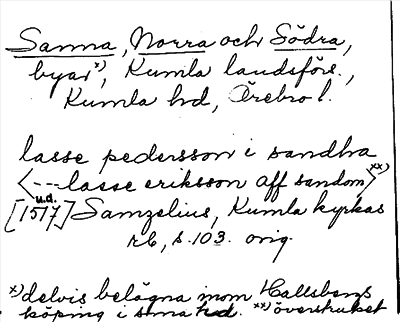 Sanna, Norra och Södra,
byar x), Kumla landsförs.,
Kumla hd, Örebro l.
lasse pedersson i sandha
<---lasse eriksson aff sandom> xx)
u.d.
[1517] Samzelius, Kumla kyrkas
rb, s. 103. orig.
x) delvis belägna inom Hallsbergs
köping i smma hd. xx) överstruket